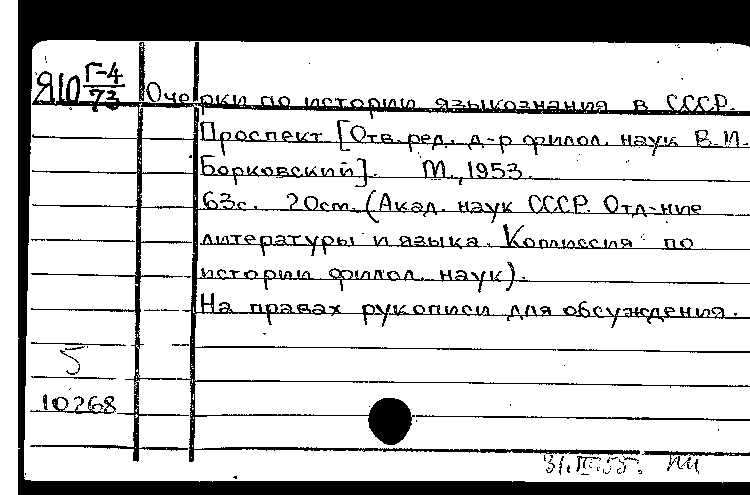 Я10 Г-4
73
Очерки по истории языкознания в СССР.
Проспект [Отв. ред. д-р филол. наук В.И.
Борковский]. М., 1953.
63с. 20см. (Акад. наук СССР. Отд-ние
литературы и языка. Комиссия по
истории филол. наук).
На правах рукописи для обсуждения.
5
10268